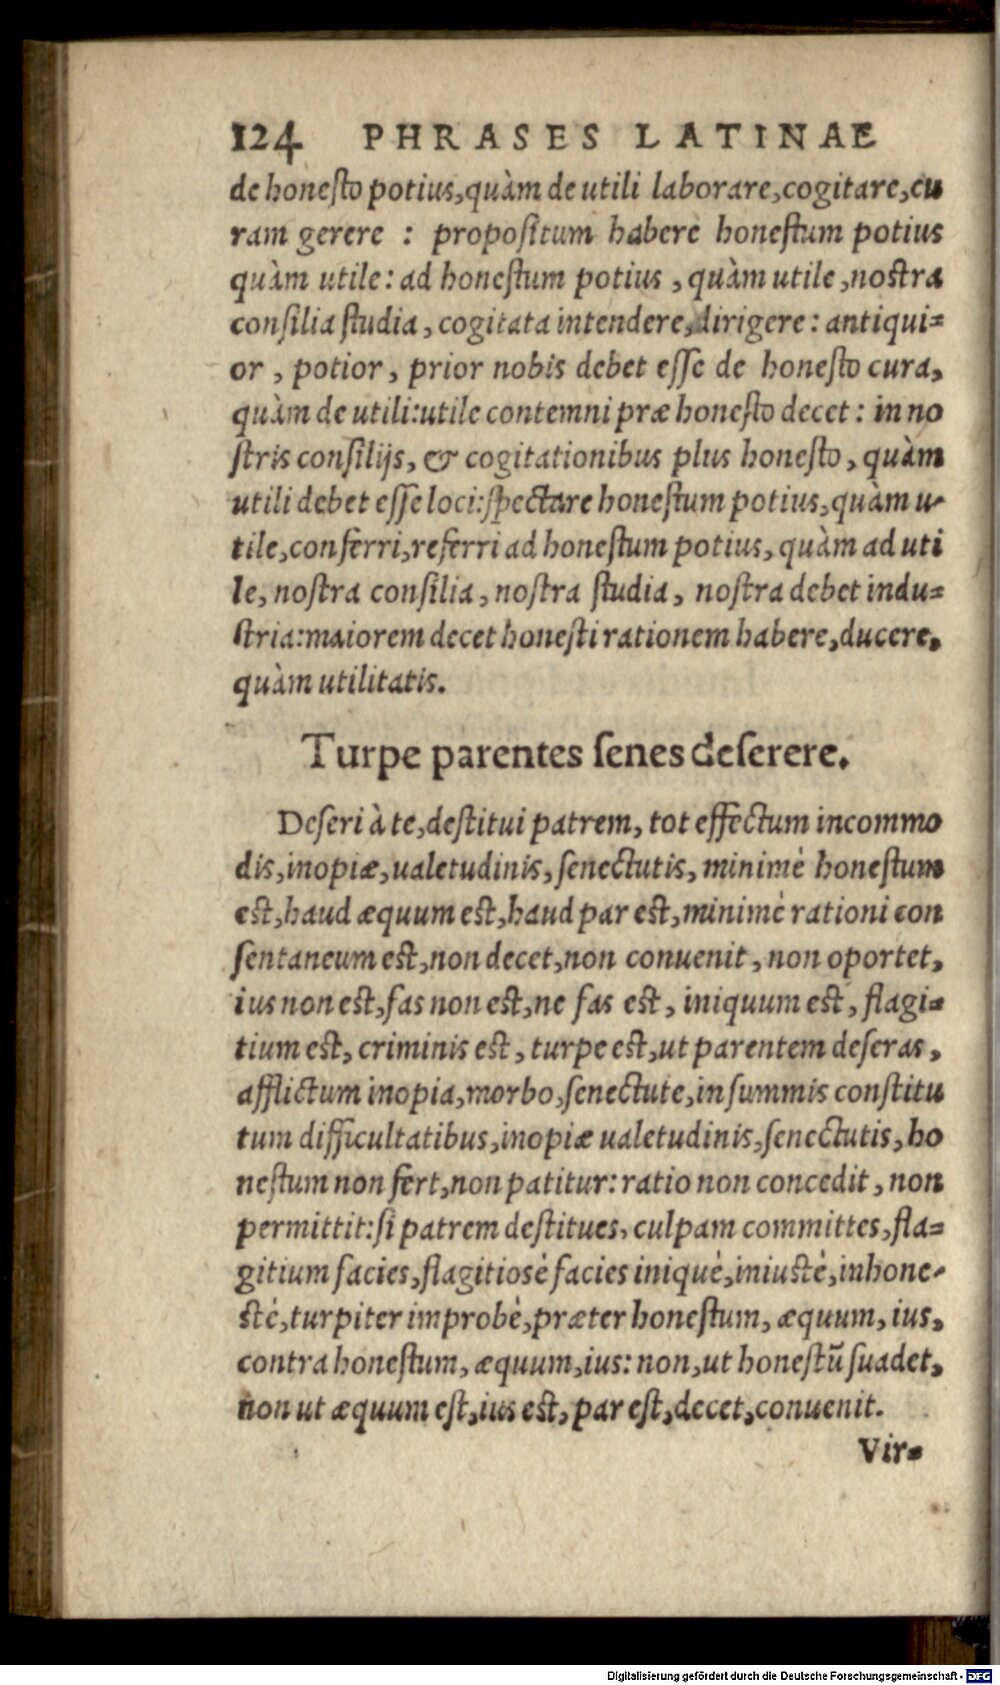 124 PHRASES LATINAE
de honesto potius,quàm de utili laborare,cogitare,cu
ram gerere : propositum habere honestum potius
quàm utile: ad honestum potius , quàm utile ,nostra
consilia studia , cogitata intendere,dirigere: antiqui=
or , potior , prior nobis debet esse de honesto cura,
quàm de utili:utile contemni præ honesto decet : in no
stris consilijs, & cogitationibus plus honesto , quàm
utili debet esse loci:spectare honestum potius,quàm u-
tile,conferri,referri ad honestum potius, quàm ad uti
le, nostra consilia , nostra studia , nostra debet indu=
stria:maiorem decet honesti rationem habere,ducere,
quàm utilitatis.
Turpe parentes senes deserere.
Deseri à te,destitui patrem, tot effectum incommo
dis,inopiæ,ualetudinis, senectutis, minimè honestum
est,haud æquum est,haud par est,minimè rationi con
sentaneum est,non decet,non conuenit , non oportet,
ius non est,fas non est,ne fas est , iniquum est , flagi=
tium est, criminis est , turpe est,ut parentem deseras ,
afflictum inopia,morbo,senectute,in summis constitu
tum difficultatibus,inopiæ ualetudinis,senectutis, ho
nestum non fert,non patitur: ratio non concedit , non
permittit:si patrem destitues, culpam committes,fla=
gitium facies,flagitiosè facies iniquè,iniustè,inhone-
stè,turpiter improbè,præter honestum, æquum, ius,
contra honestum, æquum,ius: non,ut honestũ suadet,
non ut æquum est,ius est, par est,decet,conuenit.
Vir=
Digitalisierung gefördert durch die Deutsche Forschungsgemeinschaft - DFG